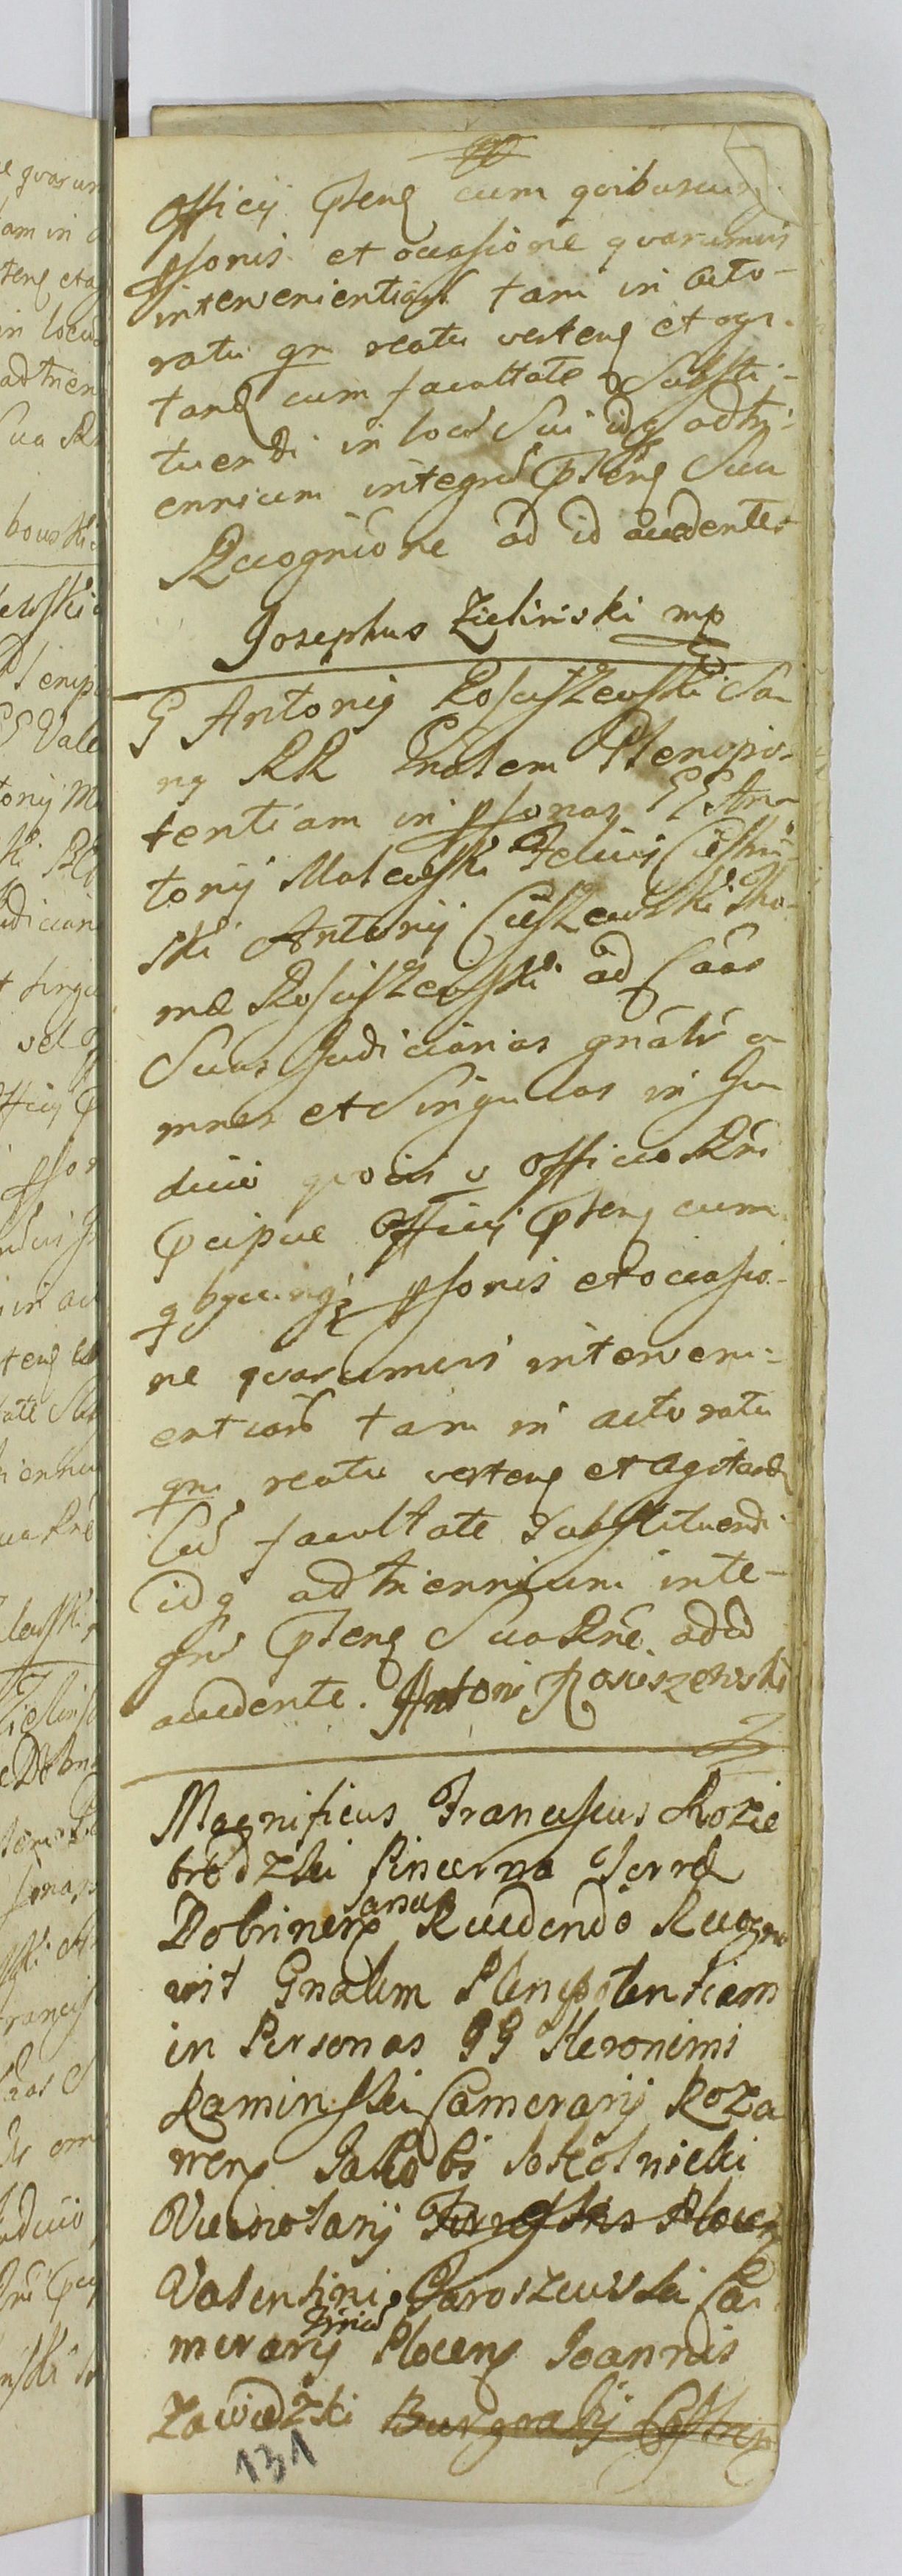 Officij Pteng cum quibuscunq
psonis et occasione quarumvis
intervenientium tam in acto-
ratu qm reatu verteng et agi-
tand cum facultate Substi-
tuendi in locū Sui idq ad tri-
ennium integrū Pteng Sua
Recognićone ad id accedente
Josephus Zieliński mp
G Antonig Rościszewski Sa
ng RR Gnalem Plenipo-
tentiam in psonas GG An-
tonij Malewski Felicis Ciesliń
ski Antonij Cieszewski Tho-
mæ Rościszewski ad Cāas
Suas Judiciarias gnālr o
mnes et Singulas in Ju
dicio quovis v Officio Rni
Pcipue Officij Pteng cum
qbgcunq psonis et occasio-
ne quarumvis interveni-
entium tam in actoratu
qm reatu verteng et agitand
Cū facultate Substituendi
idq ad triennium inte-
grū Pteng Sua Rne ad id
accedente. Antoni Rosciszewski
Magnificus Franciscus Rozie
brodzki Pincerna Terræ
Dobrinen Sanus Recedendo Recogno
vit Gnalem Plenipotentiam
in Personas GG Hieronimi
Kaminski Camerarij Roza
nen Jakobi Sokolnicki
Vicenotarij Terrestris Plocen
Valentini Jaroszewski Ca
merarij Trium Plocen Joannis
Zawidzki Burgrabij Castren
131